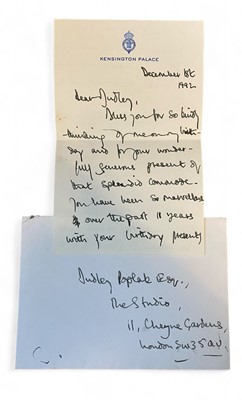 KENSINGTON PALACE
December 1st
1992
Dear Dudley,
Bless you for so kindly
thinking of me on my birth-
day and for your wonder-
fully generous present of
that splendid commode.
You have been so marvellous
over the past 11 years
with your birthday presents
Dudley Poplak Esq.,
The Studio,
11, Cheyne Gardens,
London SW3 5QU